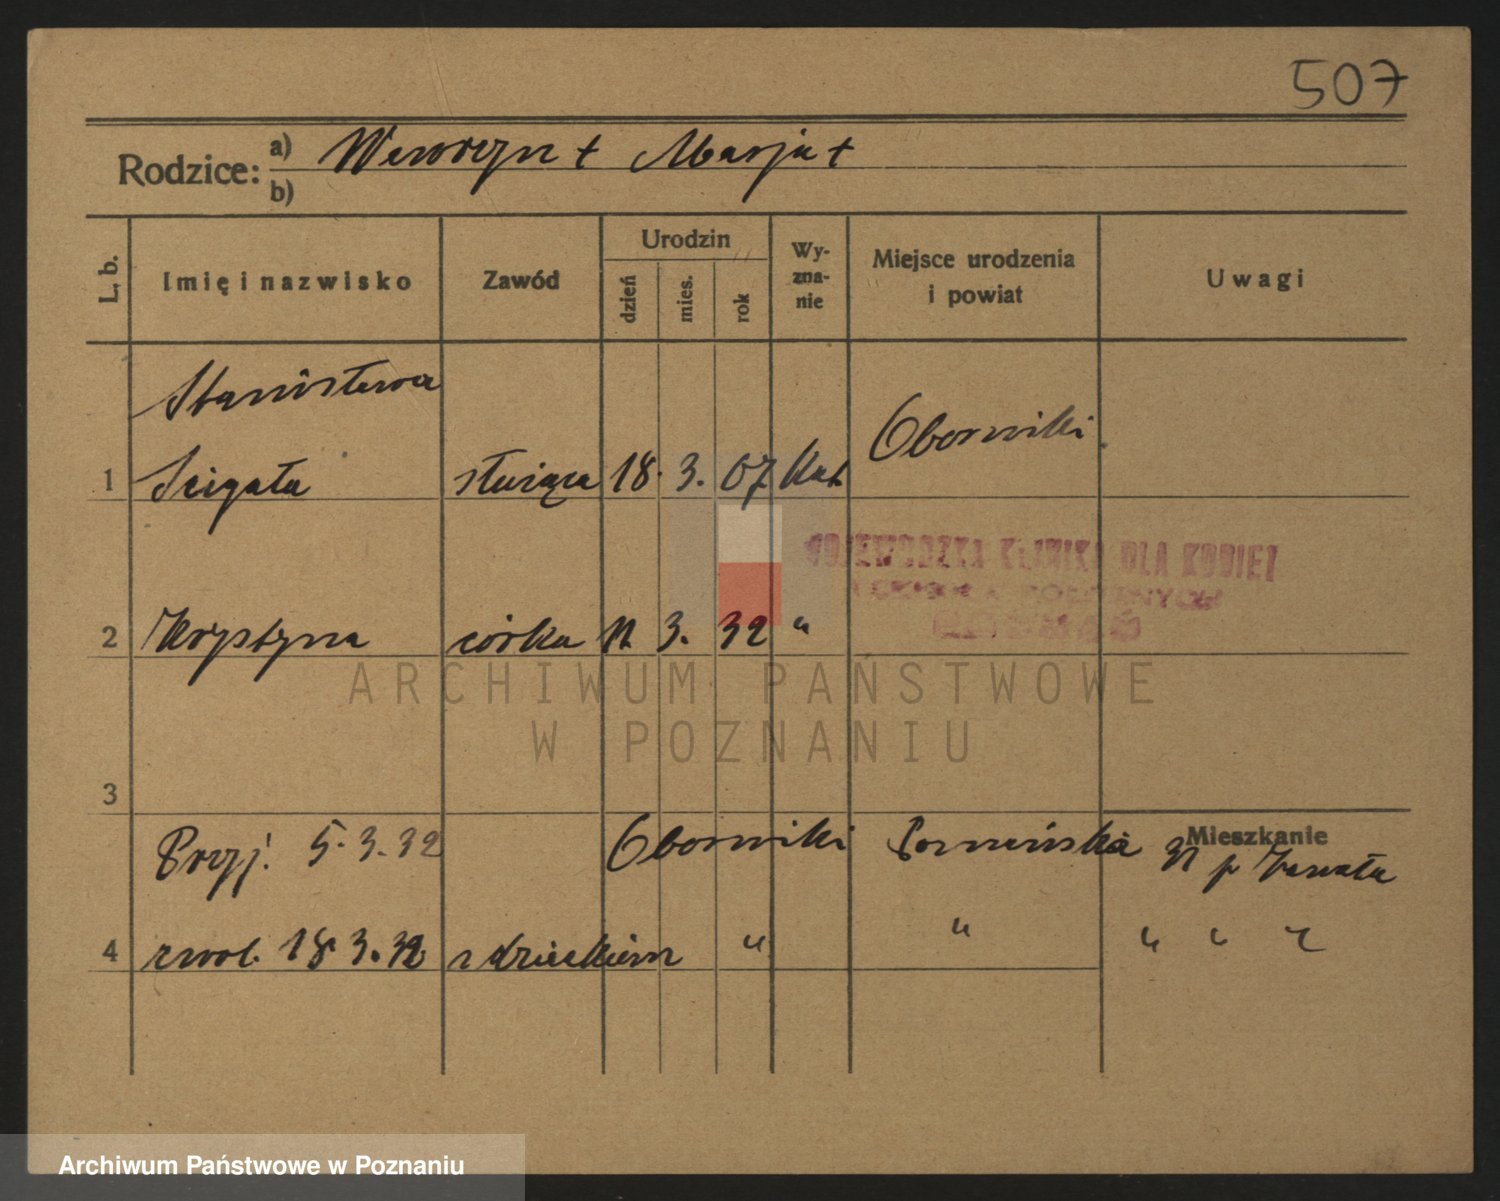 507
Rodzice: a) Wawrzyn + Marja +
b)
L. b. Imię i nazwisko Zawód Urodzin dzień mies. rok Wy-zna-nie Miejsce urodzenia i powiat Uwagi
Stanisława Oborniki
1 Ścigała służąca 18. 3. 07 kat.
WOJEWÓDZKA KLINIKA DLA KOBIET
2 Krystyna córka 11. 3. 32 "
ARCHIWUM PAŃSTWOWE
W POZNANIU
3
Mieszkanie
Przyj. 5.3.32 Oborniki 31 p
4 zwol. 18.3.32 z dzieckiem " " " "
Archiwum Państwowe w Poznaniu